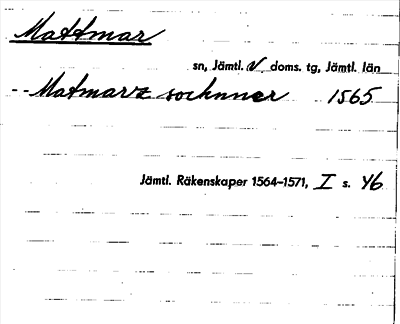 Mattmar
sn, Jämtl. V. doms. tg, Jämtl. län
-- Matmarz sochnner 1565
Jämtl. Räkenskaper 1564-1571, I s. 46